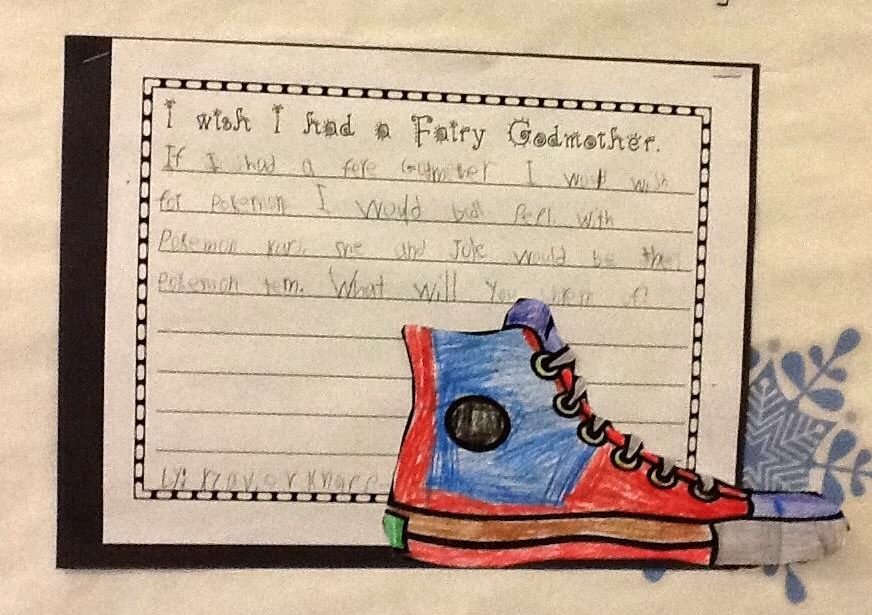 I wish I had a Fairy Godmother.
If I had a fore Gatmother I would wish
for Pokemon I would batl feel with
Pokemon kard. me and Jole would be the
Pokemon tem. What will You
by: Kravior Knapp